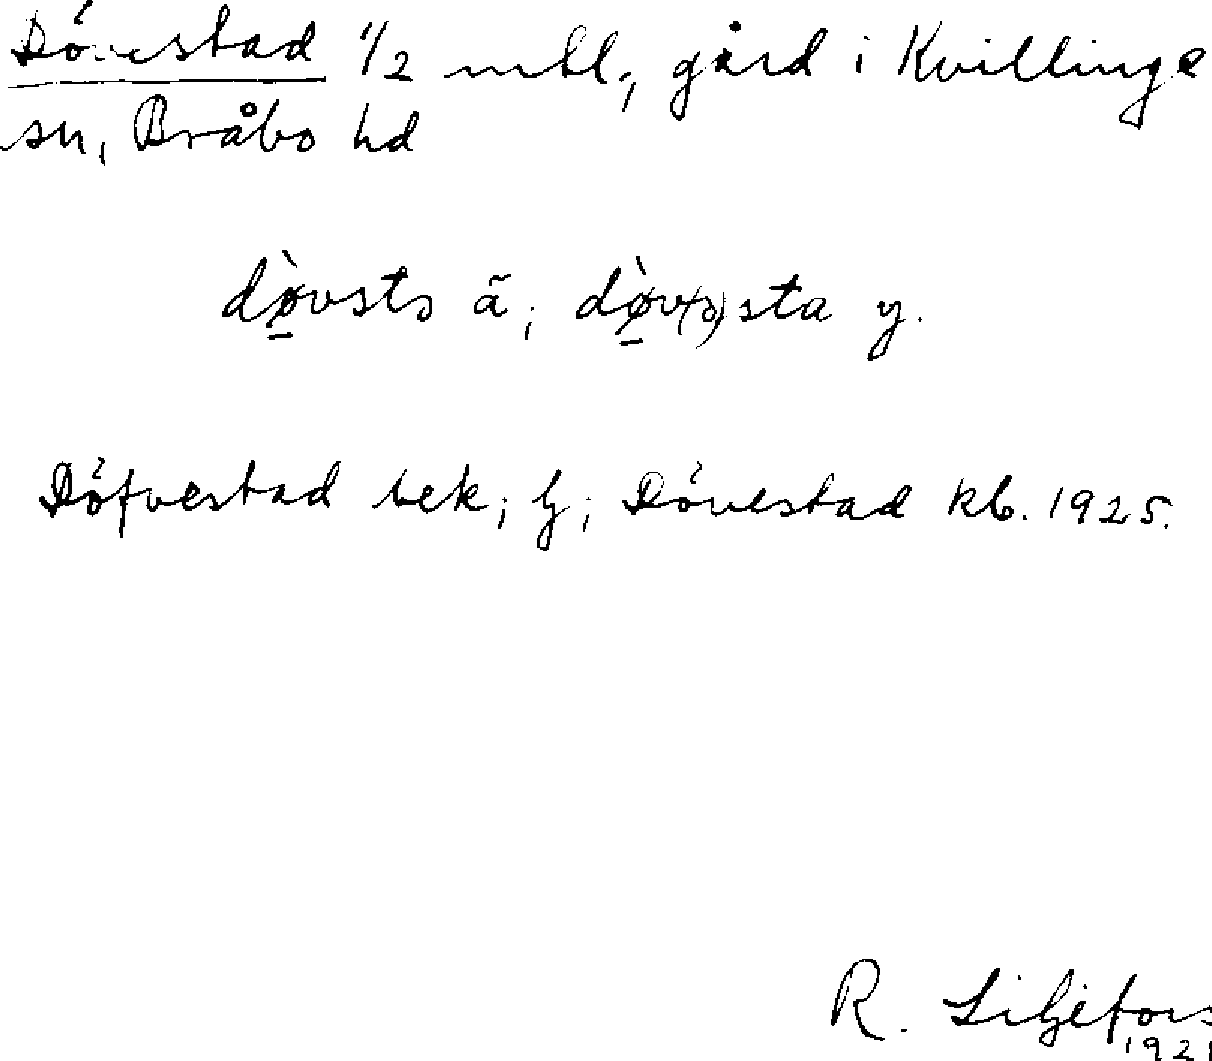 Dövestad 1/2 mtl, gård i Kvillinge
sn, Bråbo hd
dø̱̀vstə ä; dø̱̀v(ə)sta y.
Döfvestad tek; Dövestad kb. 1925.
R. Liljefors